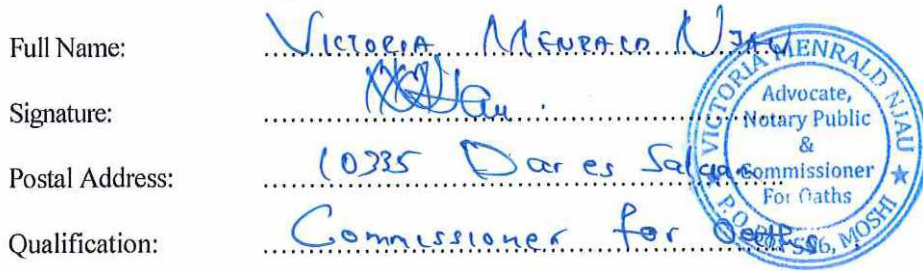 Full Name: VICTORIA MENRALD NJAU
Signature:
Postal Address: 10335 Dar es Salaam
Qualification: Commissioner for Oaths
VICTORIA MENRALD NJAU
Advocate,
Notary Public
&
Commissioner
For Oaths
MOSHI